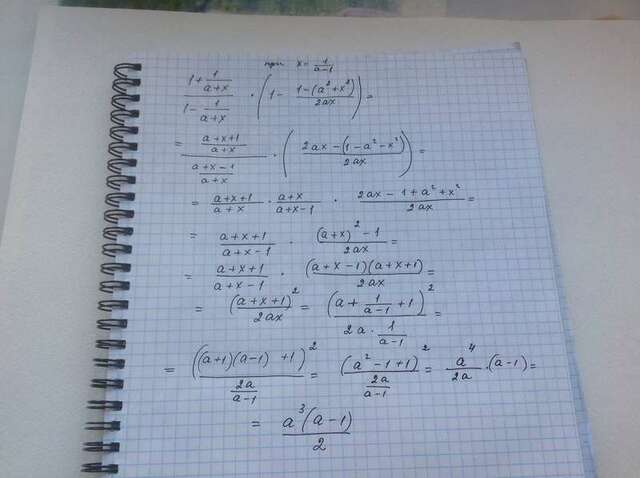 при x = 1/(a-1)
(1 + 1/(a+x))/(1 - 1/(a+x)) · (1 - (1-(a²+x²))/(2ax)) =
= ((a+x+1)/(a+x))/((a+x-1)/(a+x)) · ((2ax-(1-a²-x²))/(2ax)) =
= (a+x+1)/(a+x) · (a+x)/(a+x-1) · (2ax-1+a²+x²)/(2ax) =
= (a+x+1)/(a+x-1) · ((a+x)²-1)/(2ax) =
= (a+x+1)/(a+x-1) · ((a+x-1)(a+x+1))/(2ax) =
= (a+x+1)²/(2ax) = (a + 1/(a-1) + 1)²/(2a · 1/(a-1)) =
= ((a+1)(a-1) +1)²/(2a/(a-1)) = (a²-1+1)²/(2a/(a-1)) = a⁴/(2a) · (a-1) =
= a³(a-1)/2